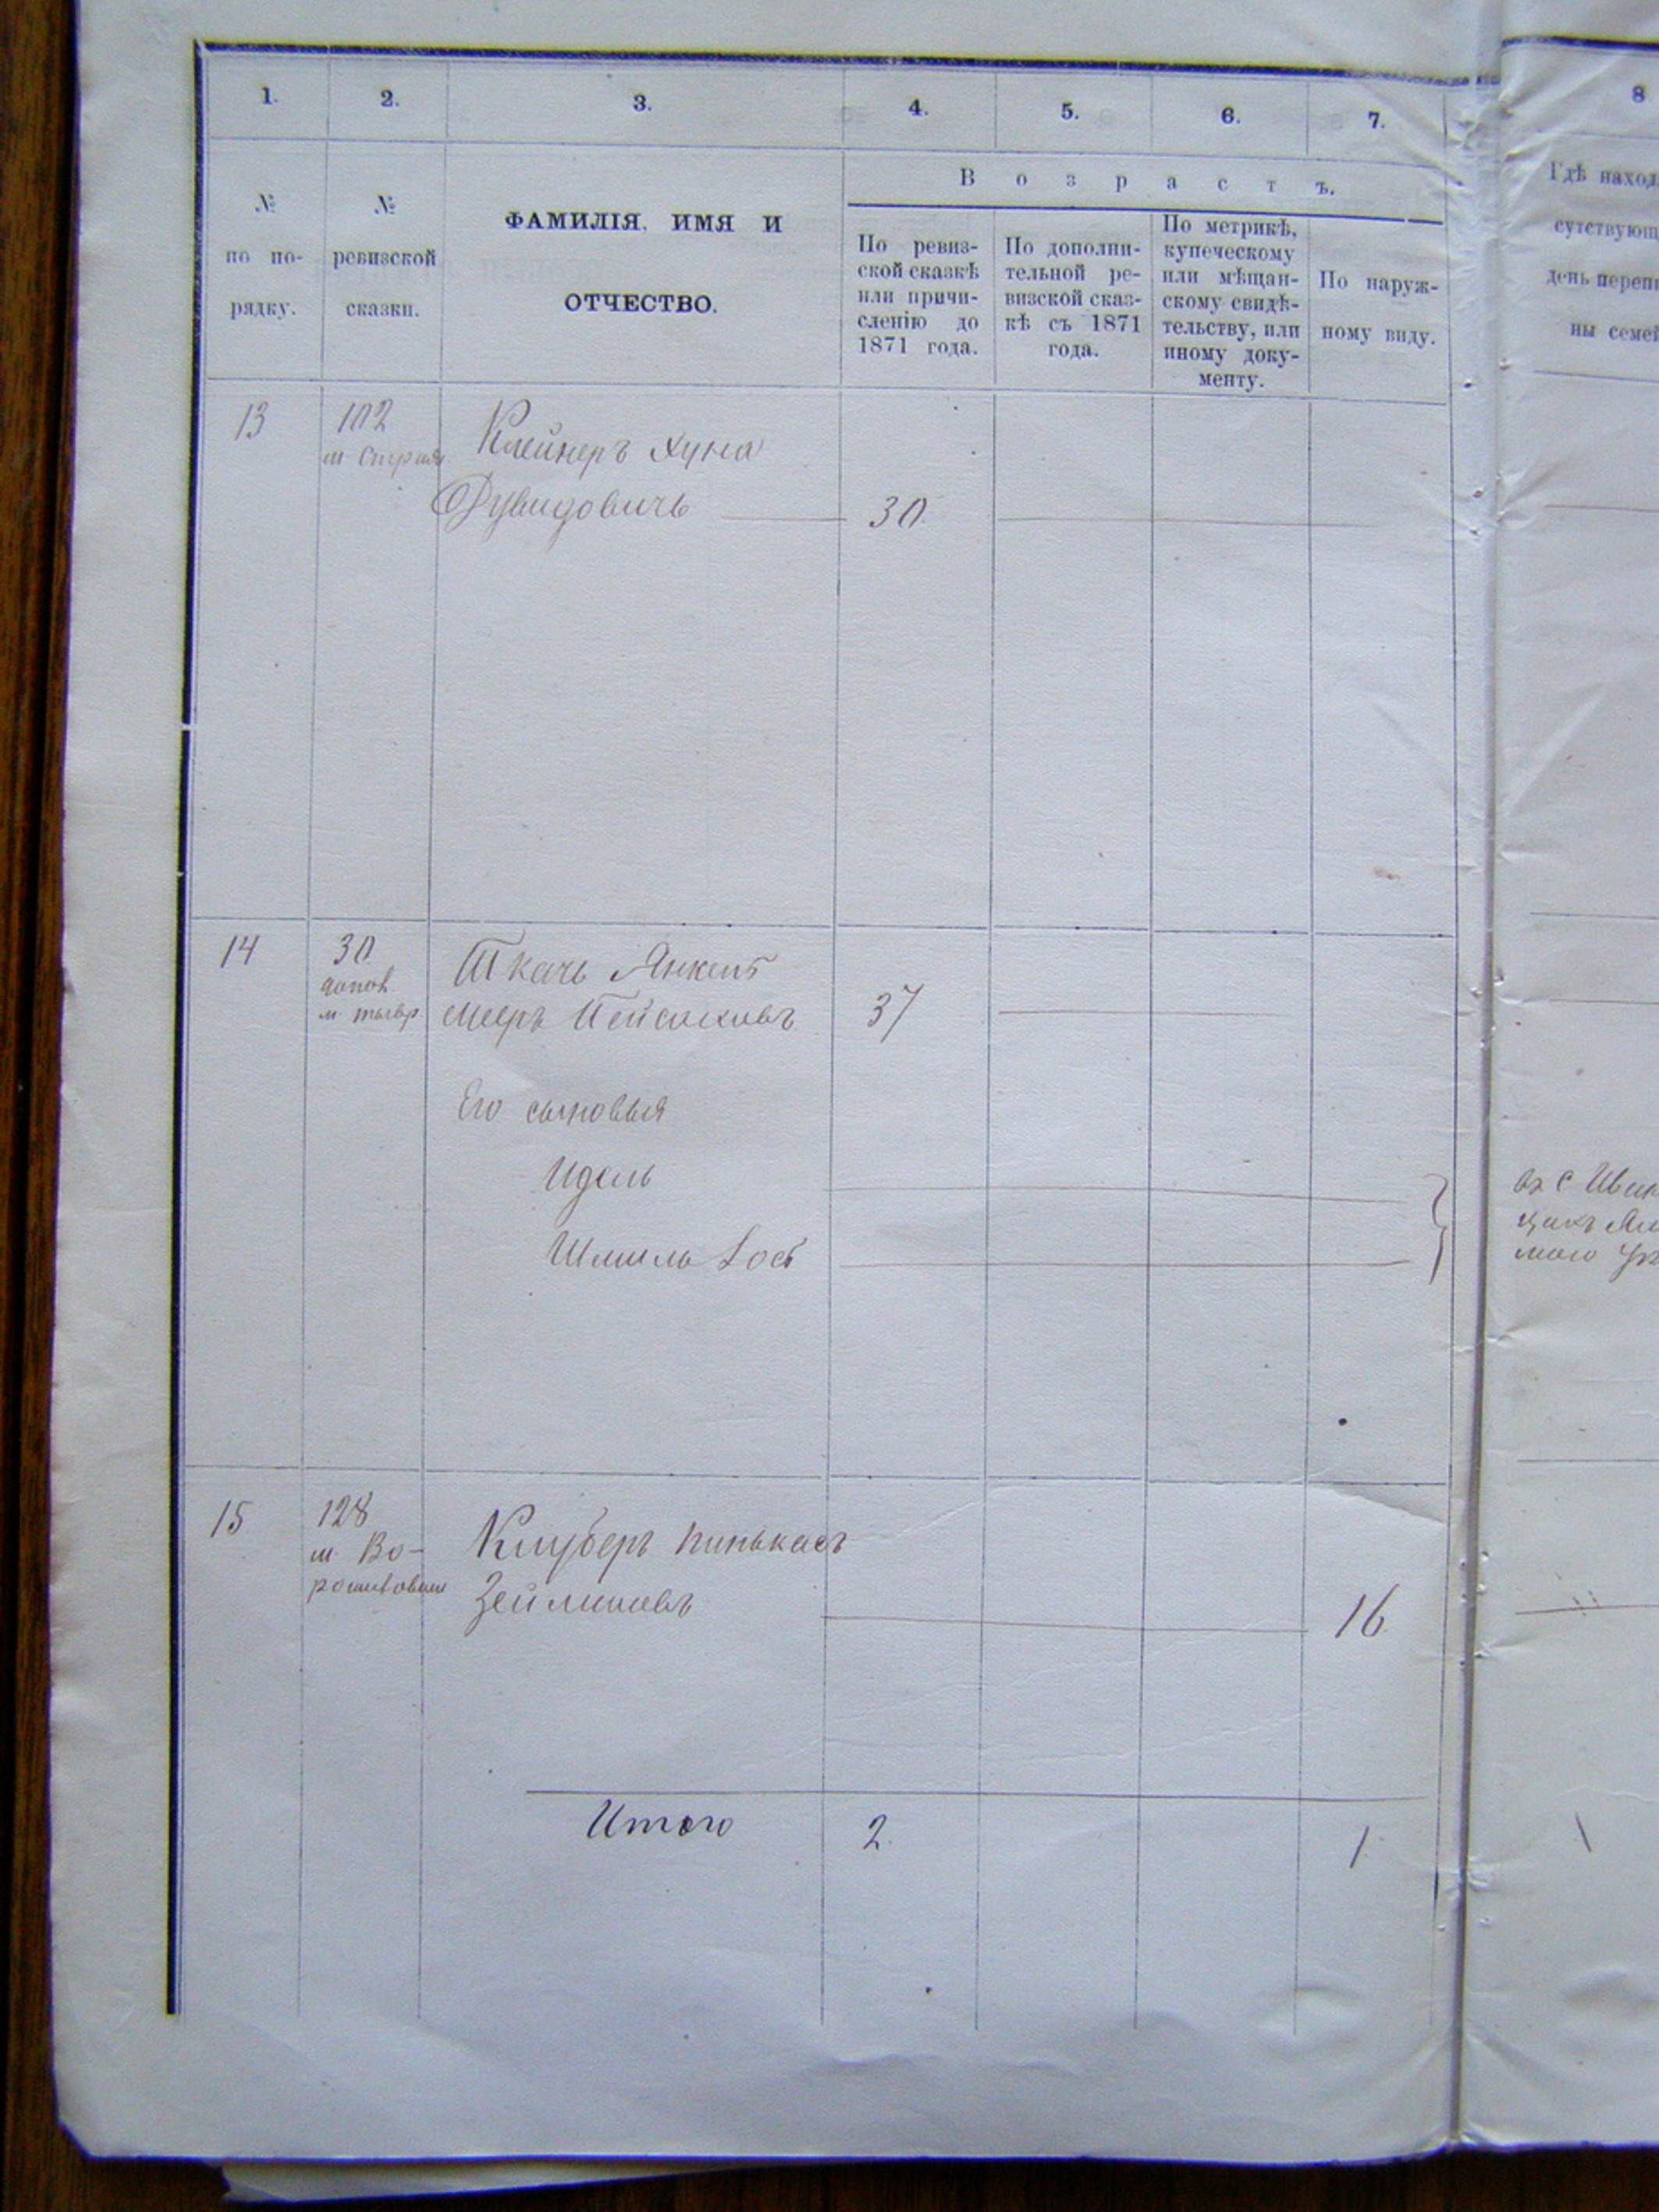 1.
2.
3.
4.
5.
6.
7.
8
№
по по-
рядку.
№
ревизской
сказки.
ФАМИЛІЯ, ИМЯ И
ОТЧЕСТВО.
Возрастъ.
По ревиз-
ской сказкѣ
или причи-
сленію до
1871 года.
По дополни-
тельной ре-
визской сказ-
кѣ съ 1871
года.
По метрикѣ,
купеческому
или мѣщан-
скому свидѣ-
тельству, или
иному доку-
менту.
По наруж-
ному виду.
Гдѣ наход
сутствующ
день переп
ны семей
13
102
Клейнеръ Хуна
Дувидовичь
30.
14
30
допол.
Ткачь Янкель
Мееръ Пейсаховъ
37
Его сыновья
Идель
Шмиль
15
128
м. Во-
Клуберъ Пинькасъ
Зейликовъ
16.
Итого
2.
1